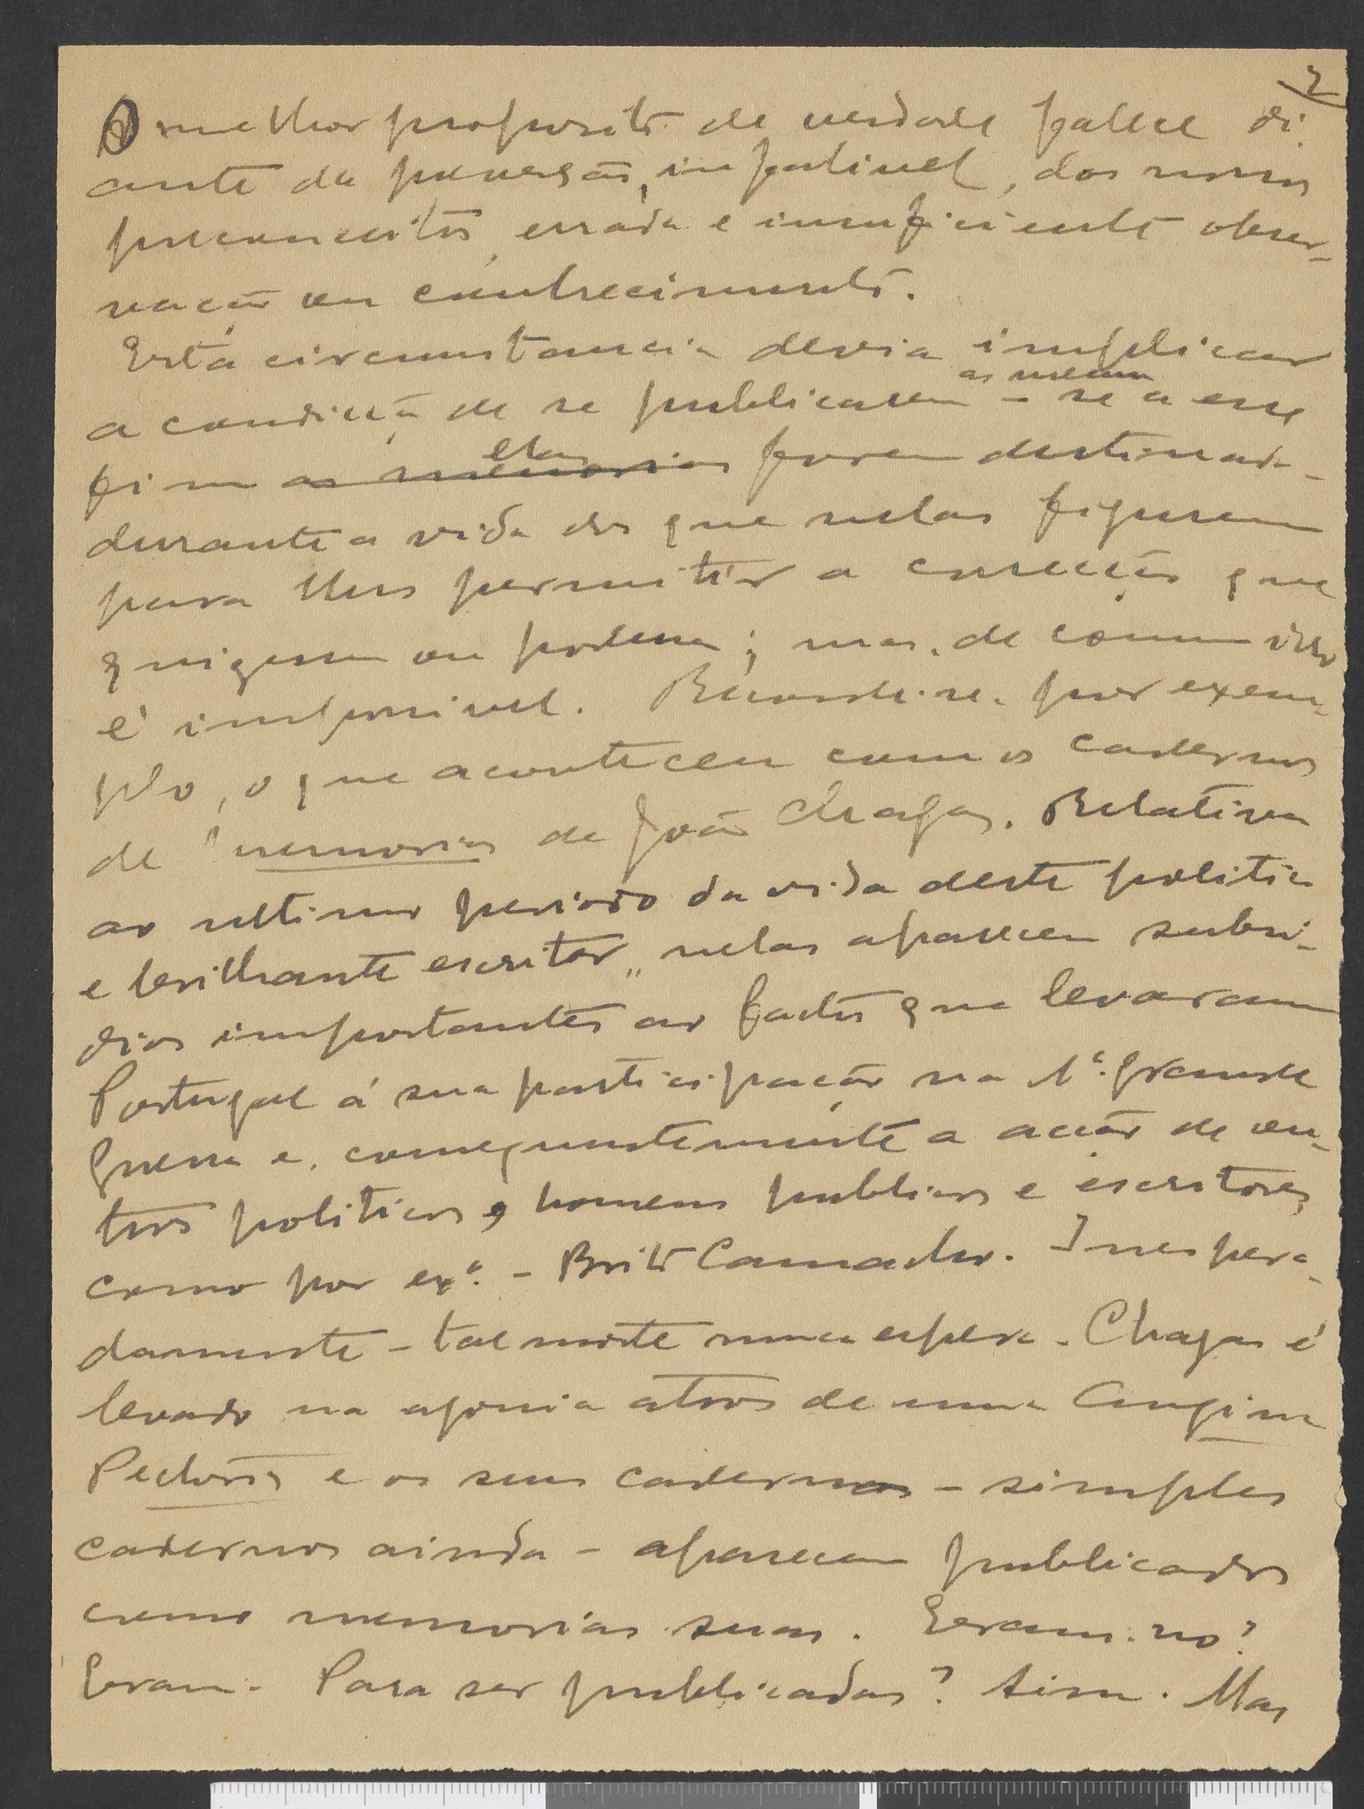 2
O melhor proposito de verdade falece di-
ante da perversão, infalivel, dos nossos
preconceitos, errada e insuficiente obser-
vação ou conhecimento.
Esta circumstancia devia implicar
a condição de se publicarem as mesmas - se a esse
fim as memorias elas forem destinadas -
durante a vida dos que nelas figurem
para lhes permitir a correcção que
quizerem ou poderem; mas, de comum isso
é impossivel. Recorde-se, por exem-
plo, o que aconteceu com os cadernos
de memorias de João Chagas. Relativas
ao ultimo periodo da vida deste politico
e brilhante escritor, nelas aparecem subsi-
dios importantes ao factos que levaram
Portugal á sua participação na 1ª grande
Guerra e, consequentemente a acção de ou-
tros politicos, homens publicos e escritores,
como por exº. - Brito Camacho. Inespera-
damente - tal morte nunca espera - Chagas é
levado na agonia atroz de uma Angina
Pectoris e os seus cadernos - simples
cadernos ainda - aparecem publicados
como memorias suas. Eram-no?
Eram. Para ser publicadas? Sim. Mas